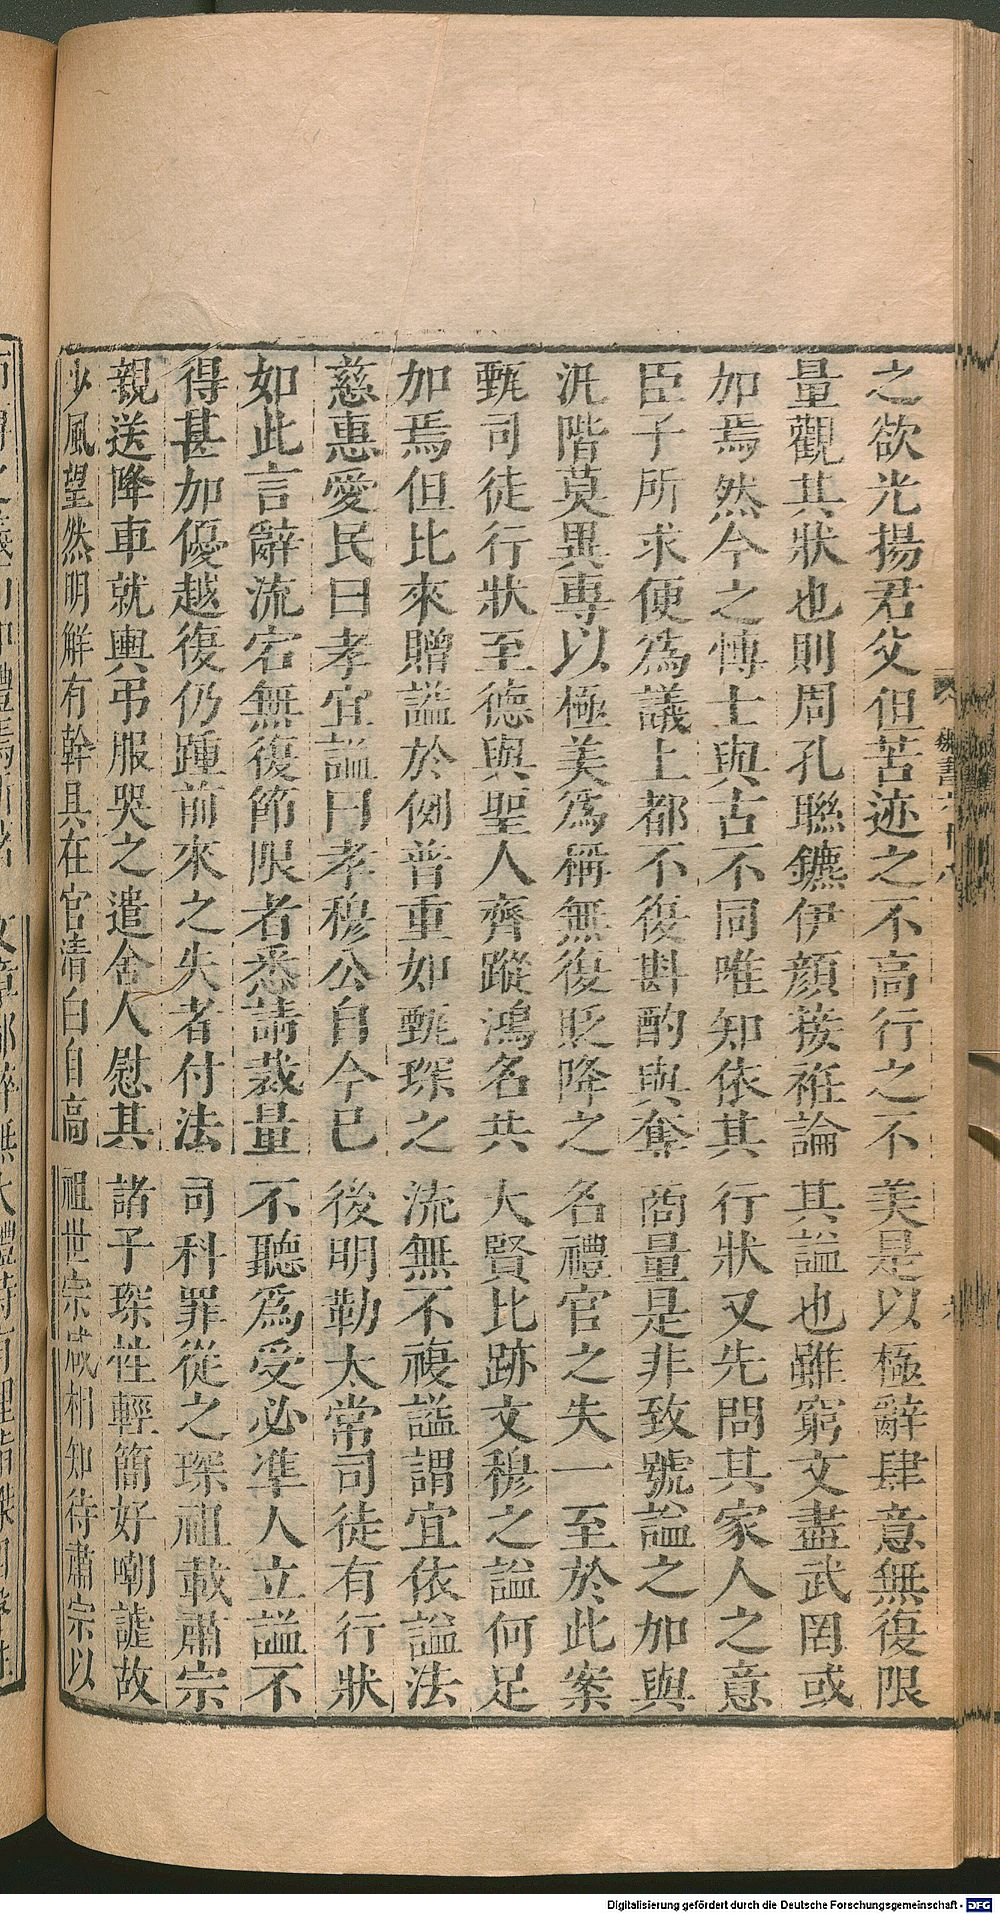 之欲光揚君父但苦迹之不高行之不美是以極辭肆意無復限
量觀其狀也則周孔聯鑣伊顏接袵論其謚也雖窮文盡武罔或
加焉然今之博士與古不同唯知依其行狀又先問其家人之意
臣子所求便爲議上都不復斟酌與奪商量是非致號謚之加與
汎階莫異專以極美爲稱無復貶降之名禮官之失一至於此案
甄司徒行狀至德與聖人齊蹤鴻名共大賢比跡文穆之謚何足
加焉但比來贈謚於例普重如甄琛之流無不複謚謂宜依謚法
慈惠愛民曰孝宜謚曰孝穆公自今已後明勒太常司徒有行狀
如此言辭流宕無復節限者悉請裁量不聽爲受必準人立謚不
得甚加優越復仍踵前來之失者付法司科罪從之琛祖載肅宗
親送降車就輿弔服哭之遣舍人慰其諸子琛性輕簡好嘲謔故
少風望然明解有幹具在官清白自高祖世宗咸相知待肅宗以
Digitalisierung gefördert durch die Deutsche Forschungsgemeinschaft - DFG